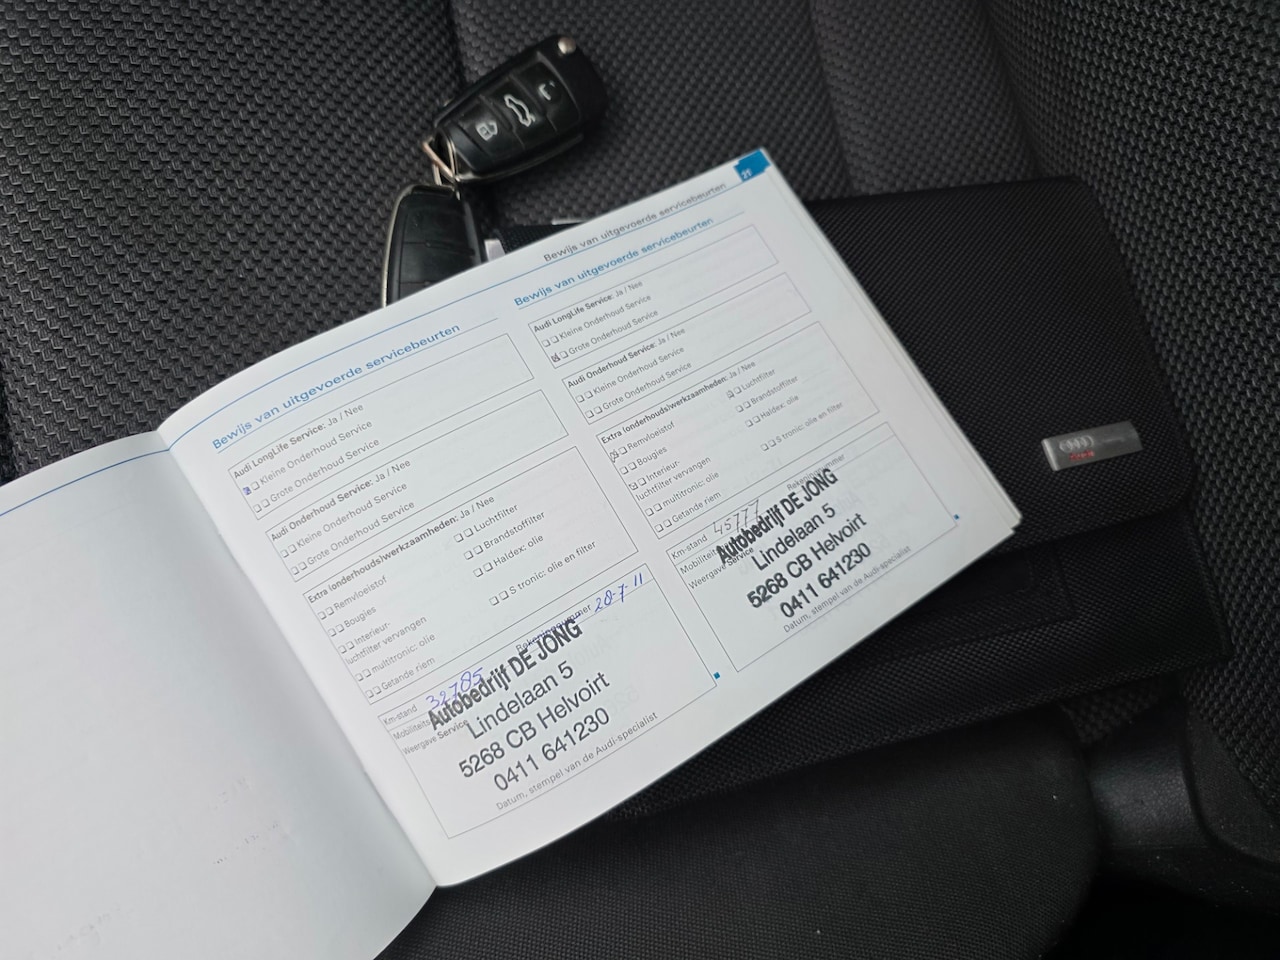 21
Bewijs van uitgevoerde servicebeurten
Bewijs van uitgevoerde servicebeurten
Audi LongLife Service: Ja / Nee
Kleine Onderhoud Service
Grote Onderhoud Service
Audi Onderhoud Service: Ja / Nee
Kleine Onderhoud Service
Grote Onderhoud Service
Extra (onderhouds)werkzaamheden: Ja / Nee
Remvloeistof
Luchtfilter
Bougies
Brandstoffilter
Interieur-
luchtfilter vervangen
Haldex: olie
multitronic: olie
Getande riem
S tronic: olie en filter
Km-stand 32785
Rekeningnummer 28-7-11
Mobiliteits
Weergave Service
Autobedrijf DE JONG
Lindelaan 5
5268 CB Helvoirt
0411 641230
Datum, stempel van de Audi-specialist
Bewijs van uitgevoerde servicebeurten
Audi LongLife Service: Ja / Nee
Kleine Onderhoud Service
Grote Onderhoud Service
Audi Onderhoud Service: Ja / Nee
Kleine Onderhoud Service
Grote Onderhoud Service
Extra (onderhouds)werkzaamheden: Ja / Nee
Remvloeistof
Luchtfilter
Bougies
Brandstoffilter
Interieur-
luchtfilter vervangen
Haldex: olie
multitronic: olie
Getande riem
S tronic: olie en filter
Km-stand 45777
Rekeningnummer
Mobiliteits
Weergave Service
Autobedrijf DE JONG
Lindelaan 5
5268 CB Helvoirt
0411 641230
Datum, stempel van de Audi-specialist